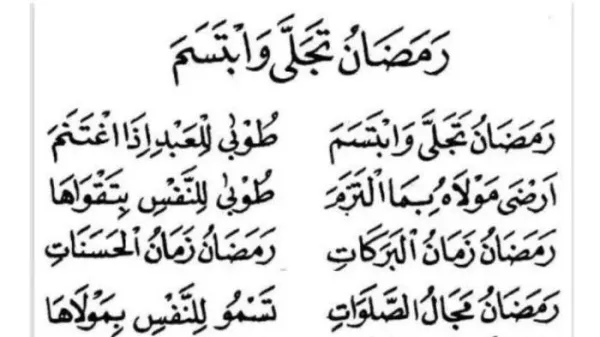 رَمَضَانُ تَجَلَّى وَابْتَسَمَ
رَمَضَانُ تَجَلَّى وَابْتَسَمَ طُوْبَى لِلْعَبْدِ إِذَا اغْتَنَمَ
اَرْضَى مَوْلَاهُ بِمَا الْتَزَمَ طُوْبَى لِلنَّفْسِ بِتَقْوَاهَا
رَمَضَانُ زَمَانُ الْبَرَكَاتِ رَمَضَانُ زَمَانُ الْحَسَنَاتِ
رَمَضَانُ مَجَالُ الصَّلَوَاتِ تَسْمُو لِلنَّفْسِ بِمَوْلَاهَا